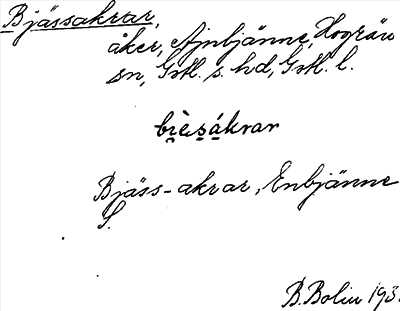 Bjässakrar,
åker, Ajnbjänne, Hogrän
sn, Gotl. s. hd, Gotl. l.
bi̯èsákrar
Bjäss-akrar, Enbjänne
S.
B. Bolin 193